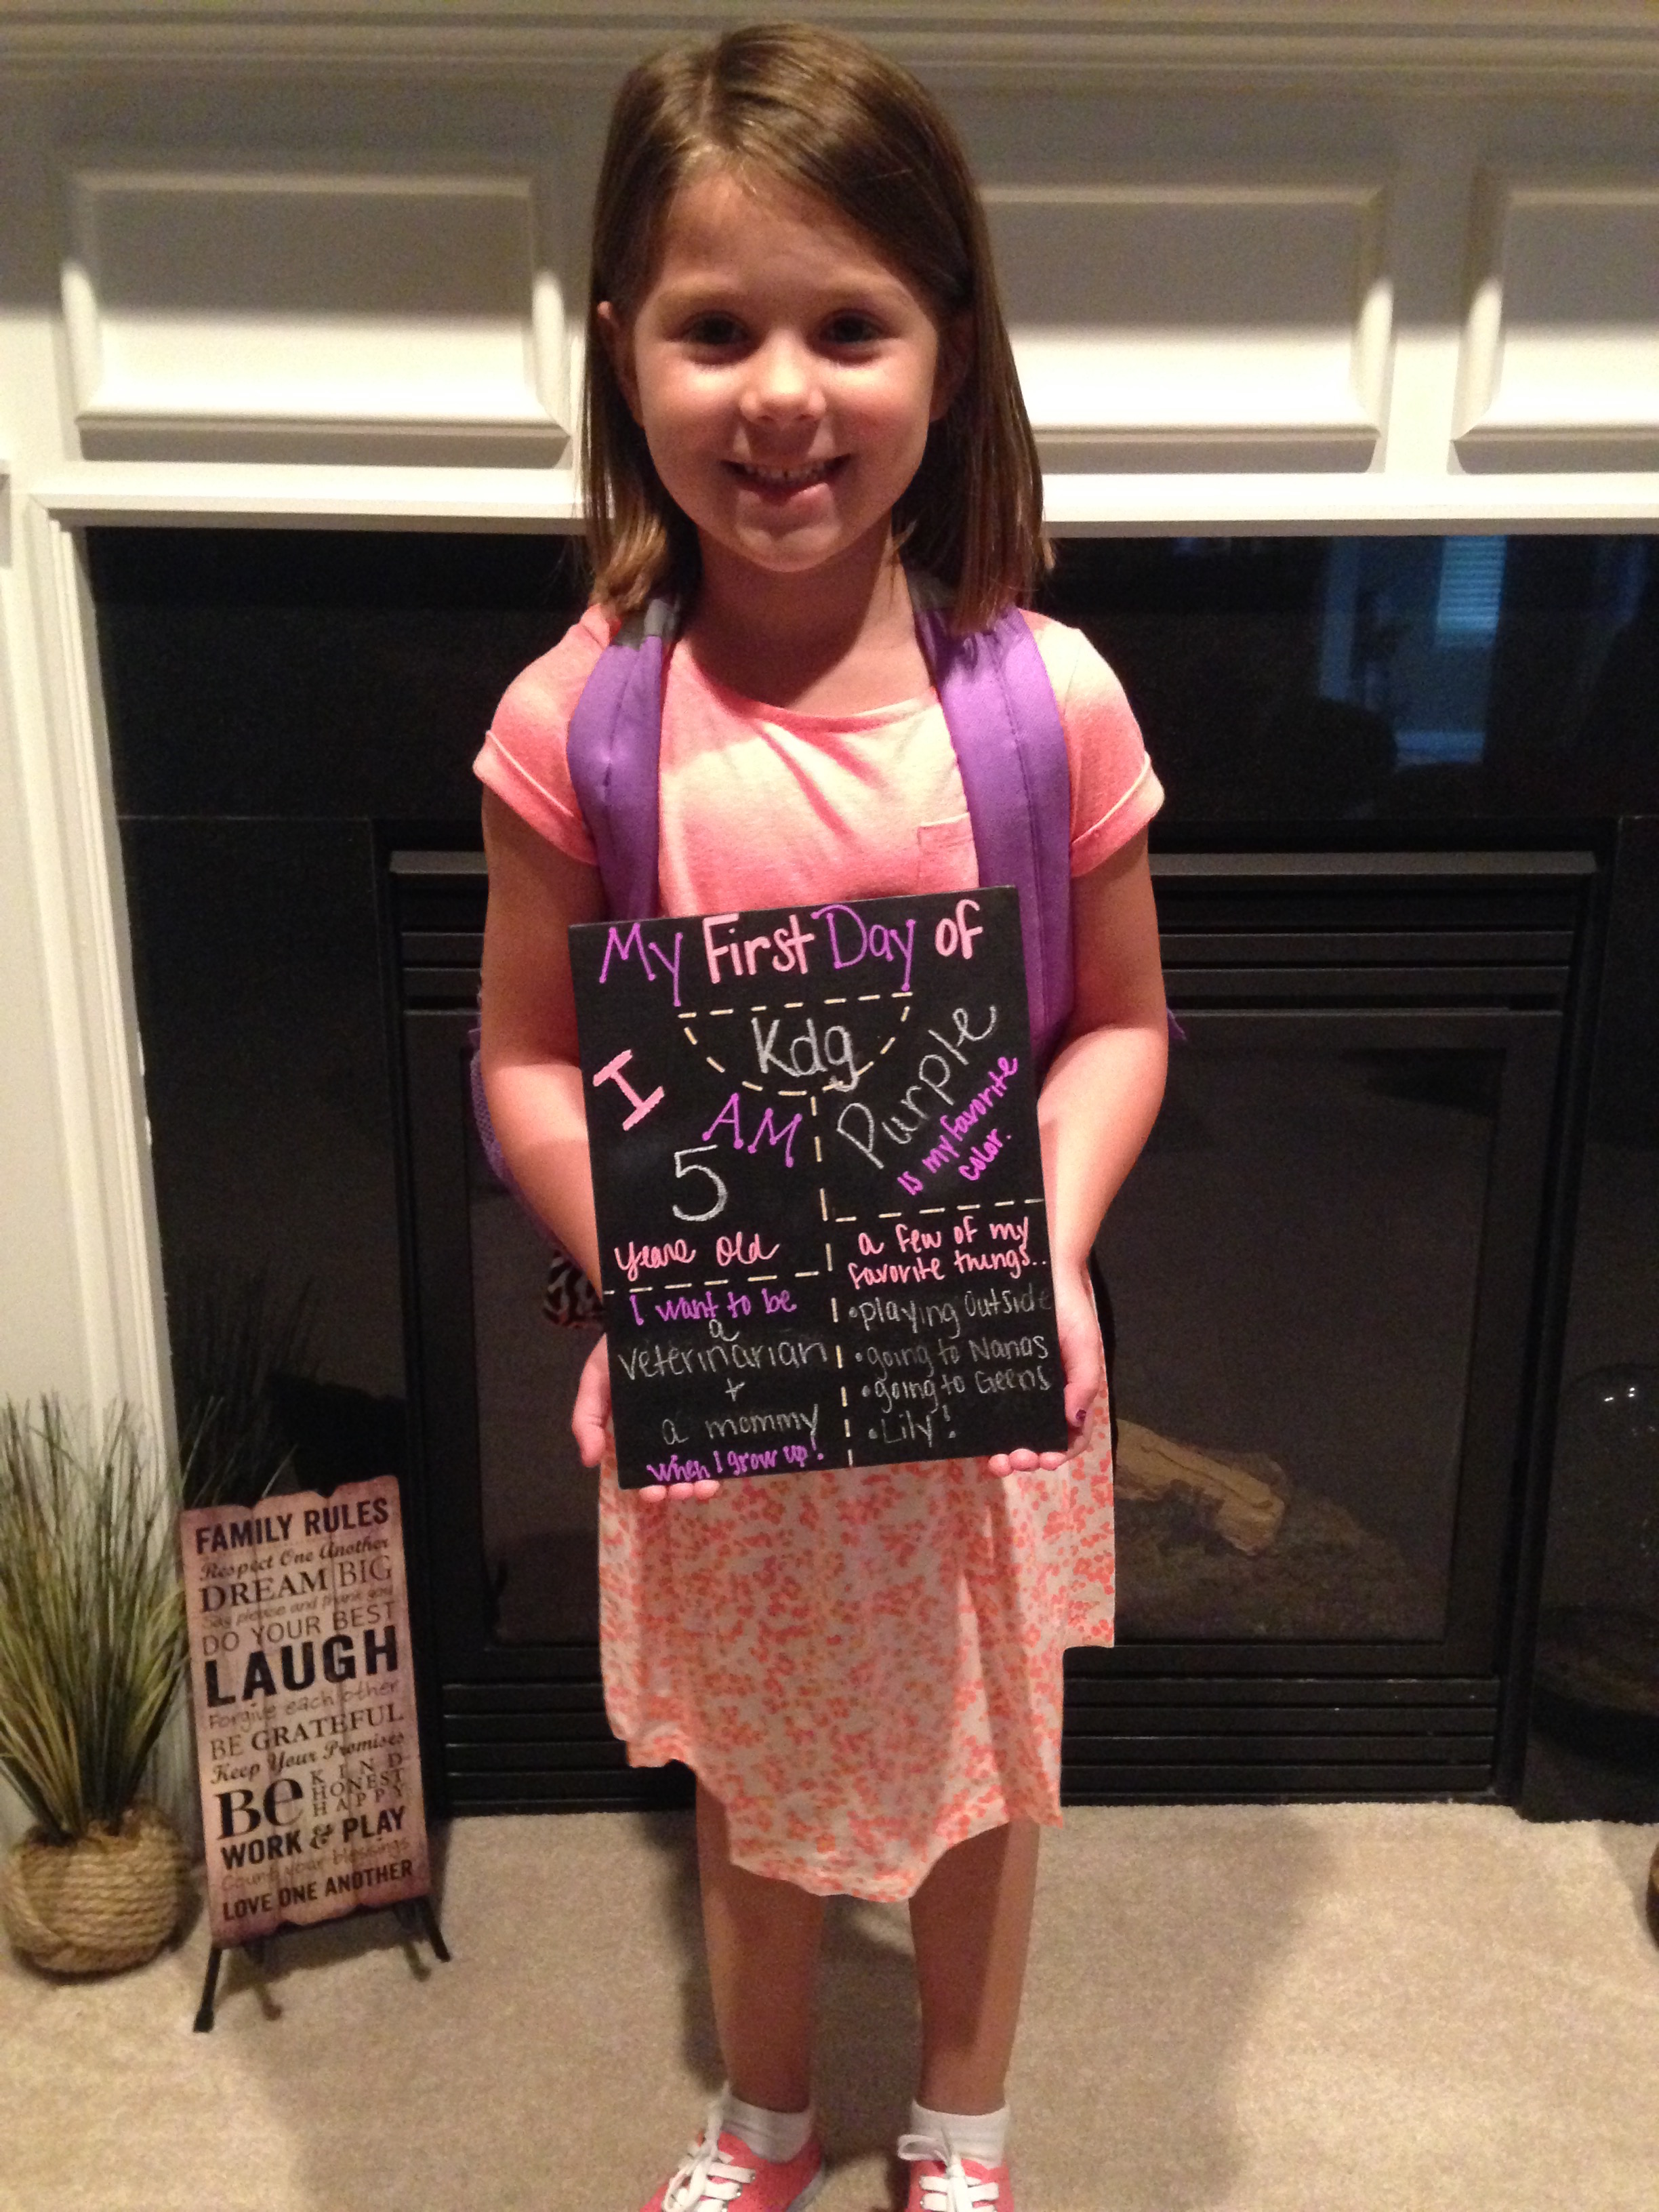 My First Day of
Kdg
I
AM
5
years old
Purple
is my favorite
color.
I want to be
a
veterinarian
+
a mommy
when I grow up!
a few of my
favorite things..
•playing outside
•going to Nanas
•going to Geens
•Lily!
FAMILY RULES
Respect One Another
DREAM BIG
Say please and thank you
DO YOUR BEST
LAUGH
Forgive each other
BE GRATEFUL
Keep Your Promises
Be KIND
HONEST
HAPPY
WORK & PLAY
Count your blessings
LOVE ONE ANOTHER